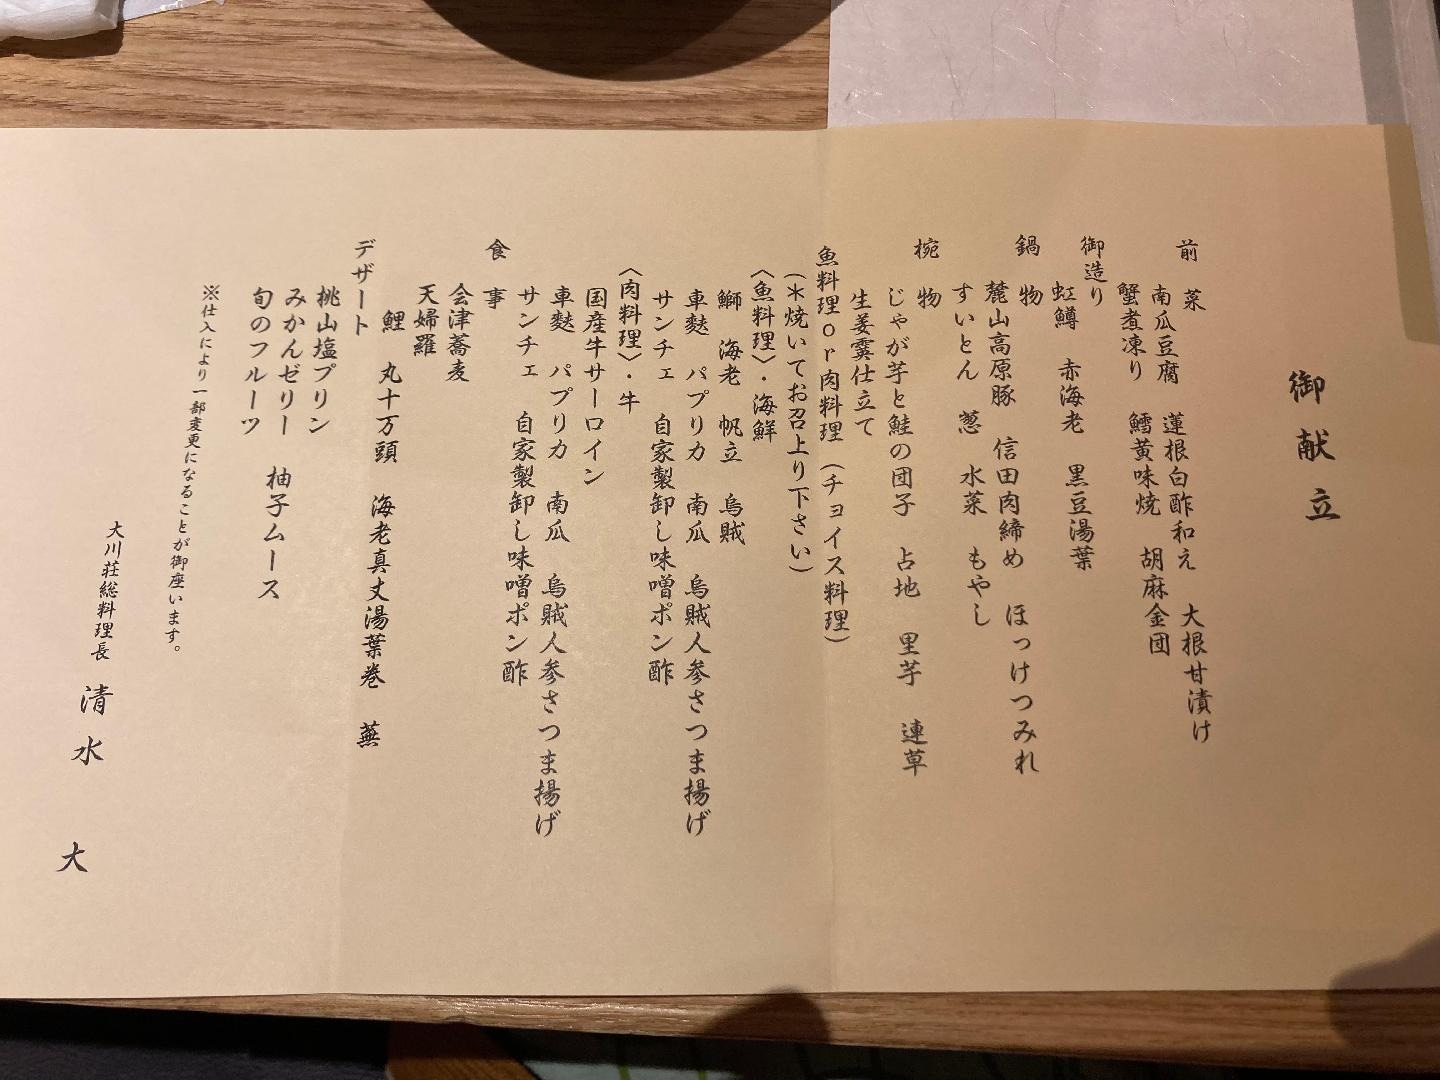 御献立
前菜
南瓜豆腐 蓮根白酢和え 大根甘漬け
蟹煮凍り 鱈黄味焼 胡麻金団
御造り
虹鱒 赤海老 黒豆湯葉
鍋物
麓山高原豚 信田肉締め ほっけつみれ
すいとん 葱 水菜 もやし
椀物
じゃが芋と鮭の団子 占地 里芋 連草
生姜霙仕立て
魚料理or肉料理（チョイス料理）
（＊焼いてお召上り下さい）
〈魚料理〉・海鮮
鰤 海老 帆立 烏賊
車麩 パプリカ 南瓜 烏賊人参さつま揚げ
サンチェ 自家製卸し味噌ポン酢
〈肉料理〉・牛
国産牛サーロイン
車麩 パプリカ 南瓜 烏賊人参さつま揚げ
サンチェ 自家製卸し味噌ポン酢
食事
会津蕎麦
天婦羅
鯉 丸十万頭 海老真丈湯葉巻 蕪
デザート
桃山塩プリン
みかんゼリー 柚子ムース
旬のフルーツ
※仕入により一部変更になることが御座います。
大川荘総料理長 清水 大